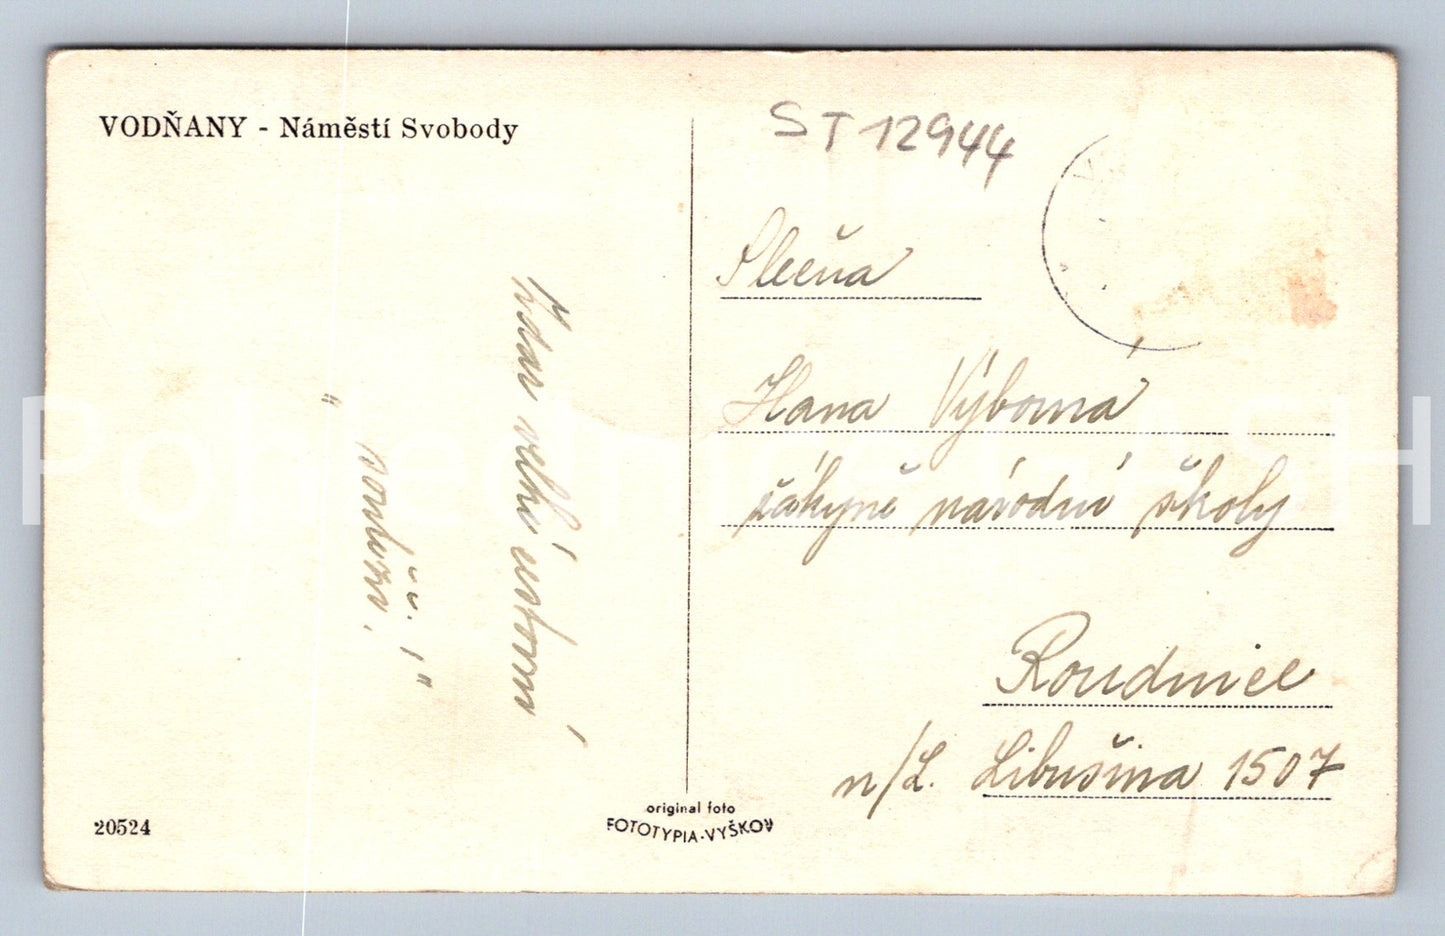 VODŇANY - Náměstí Svobody
ST 12944
Slečna
Hana Výborná
žákyně národní školy
Roudnice
n/L. Libušina 1507
Zdar velké cestovní
"
original foto
FOTOTYPIA-VYŠKOV
20524